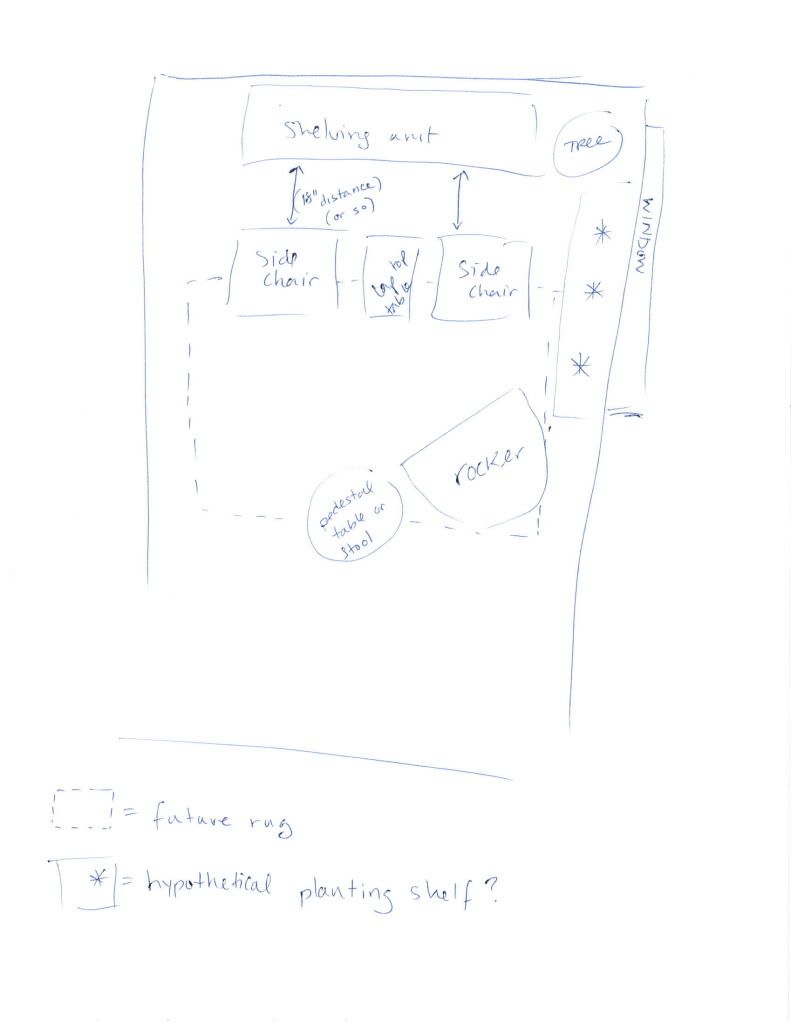 Shelving unit
TREE
(18" distance)
(or so)
WINDOW
Side
Chair
table
Side
Chair
rocker
pedestal
table or
stool
= future rug
= hypothetical planting shelf?